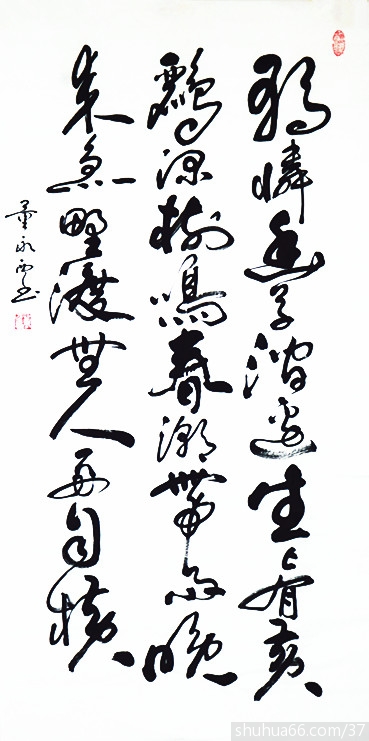 独憐幽草澗邊生上有黄
鸝深樹鳴春潮帶雨晚
来急野渡無人舟自横
永西书
shuhua66.com/37